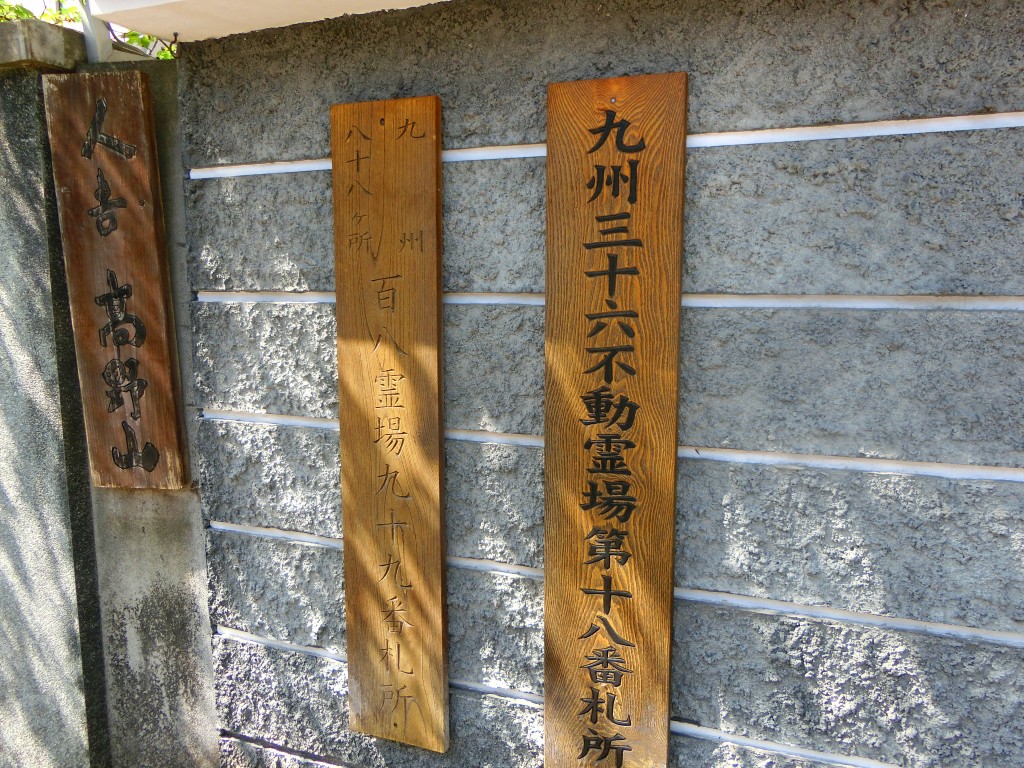 九州三十六不動霊場第十八番札所
九州
八十八ヶ所
百八霊場九十九番札所
人吉高野山